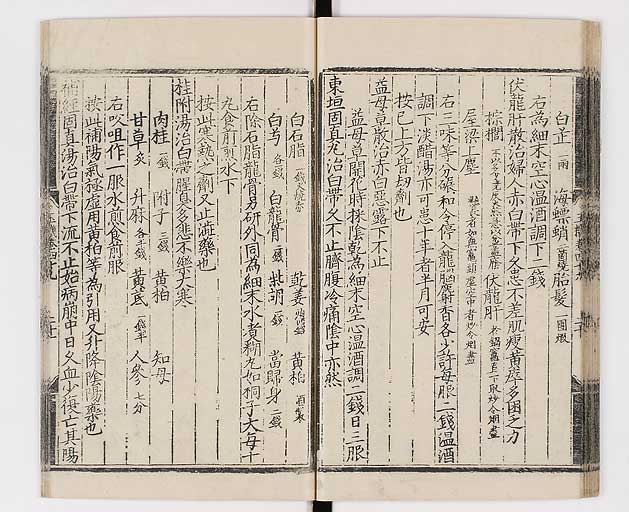 白芷一兩 海螵蛸二箇燒 胎髮一團煅
右為細末空心溫酒調下二錢
伏龍肝散治婦人赤白帶下久患不差肌瘦黃瘁多困乏力
棕櫚 伏龍肝
屋梁上塵
右三味等分碾和令停入龍腦麝香各少許每服二錢溫酒
調下淡醋湯亦可患十年者半月可安
按已上方皆刼劑也
益母草散治赤白惡露下不止
益母草開花時採陰乾為細末空心溫酒調二錢日三服
東垣固真丸治白帶久不止臍腹冷痛陰中亦然
白石脂 乾姜 黃柏
白芍 白龍骨 柴胡 當歸身
右除石脂龍骨另研外同為細末水煮糊丸如桐子大每十
丸食前煎水下
按此寒熱之劑又止澁藥也
桂附湯治白帶腥臭多悲不樂大寒
肉桂一錢 附子三錢 黃柏 知母
甘草炙 升麻 黃芪 人參七分
右㕮咀作一服水煎食前服
按此補陽氣極虛用黃柏等為引用又升降陰陽藥也
補經固真湯治白帶下流不止始病崩中日久血少復亡其陽